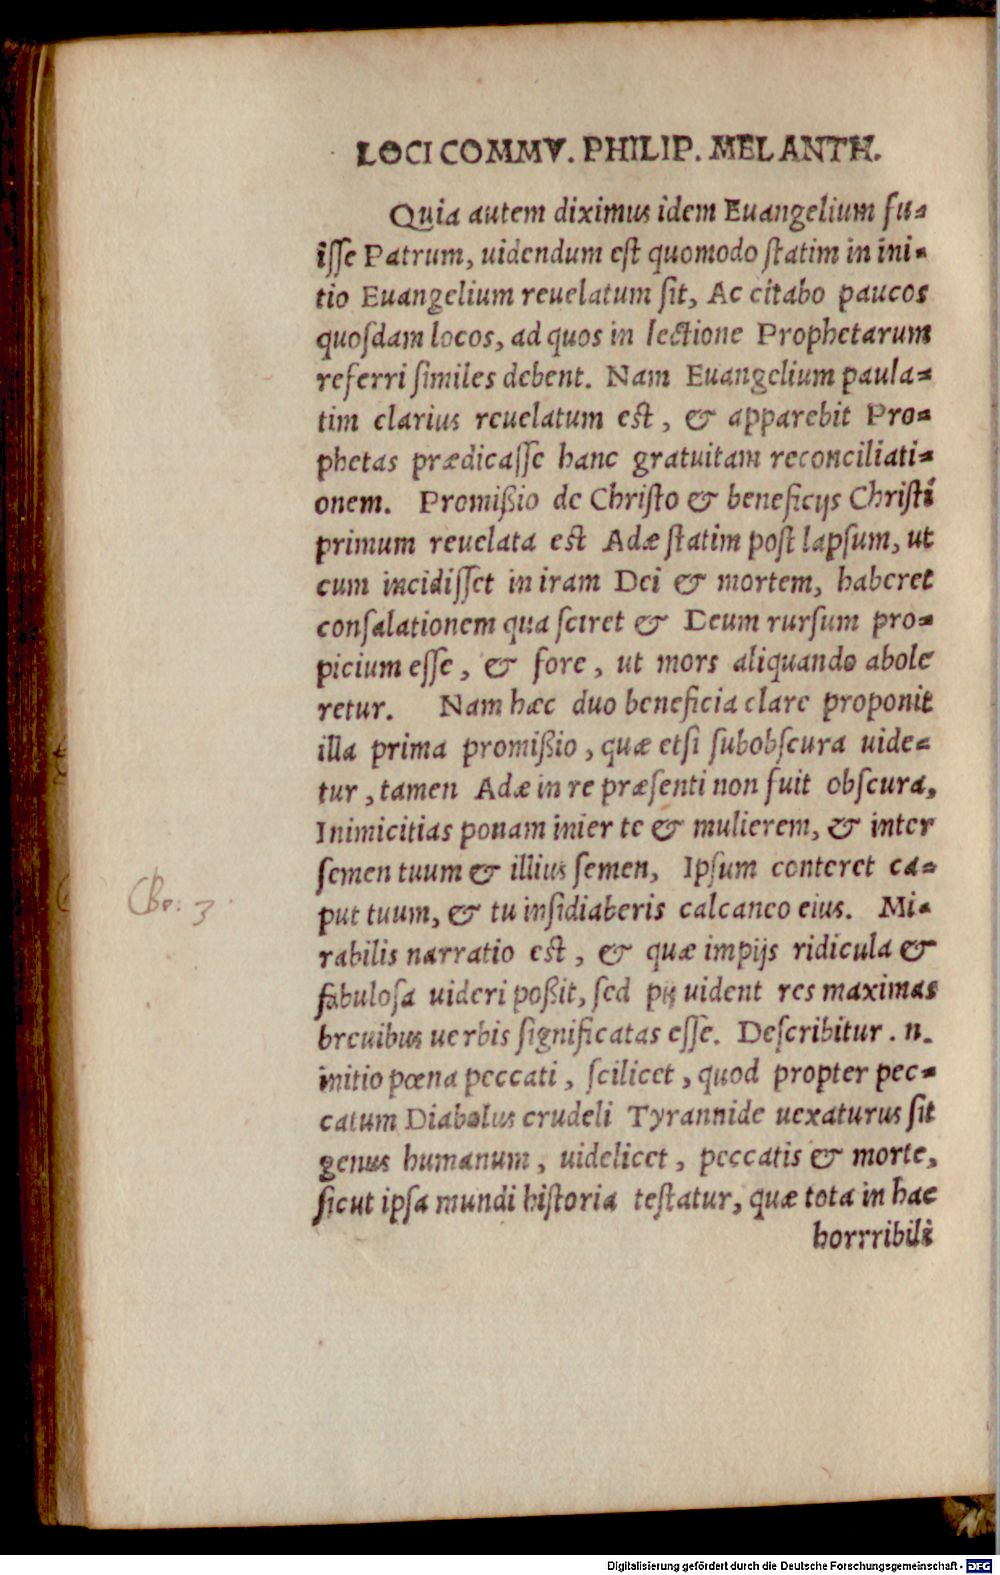 LOCI COMMV. PHILIP. MELANTH.
Quia autem diximus idem Euangelium fu-
isse Patrum, uidendum est quomodo statim in ini-
tio Euangelium reuelatum sit, Ac citabo paucos
quosdam locos, ad quos in lectione Prophetarum
referri similes debent. Nam Euangelium paula-
tim clarius reuelatum est, & apparebit Pro-
phetas prædicasse hanc gratuitam reconciliati-
onem. Promißio de Christo & beneficijs Christi
primum reuelata est Adæ statim post lapsum, ut
cum incidisset in iram Dei & mortem, haberet
consalationem qua sciret & Deum rursum pro-
picium esse, & fore, ut mors aliquando abole
retur. Nam hæc duo beneficia clare proponit
illa prima promißio, quæ etsi subobscura uide-
tur, tamen Adæ in re præsenti non fuit obscura,
Inimicitias ponam inier te & mulierem, & inter
semen tuum & illius semen, Ipsum conteret ca-
Ge: 3
put tuum, & tu insidiaberis calcaneo eius. Mi-
rabilis narratio est, & quæ impijs ridicula &
fabulosa uideri poßit, sed pij uident res maximas
breuibus uerbis significatas esse. Describitur .n.
initio pœna peccati, scilicet, quod propter pec-
catum Diabolus crudeli Tyrannide uexaturus sit
genus humanum, uidelicet, peccatis & morte,
sicut ipsa mundi historia testatur, quæ tota in hac
horrribili
Digitalisierung gefördert durch die Deutsche Forschungsgemeinschaft - DFG